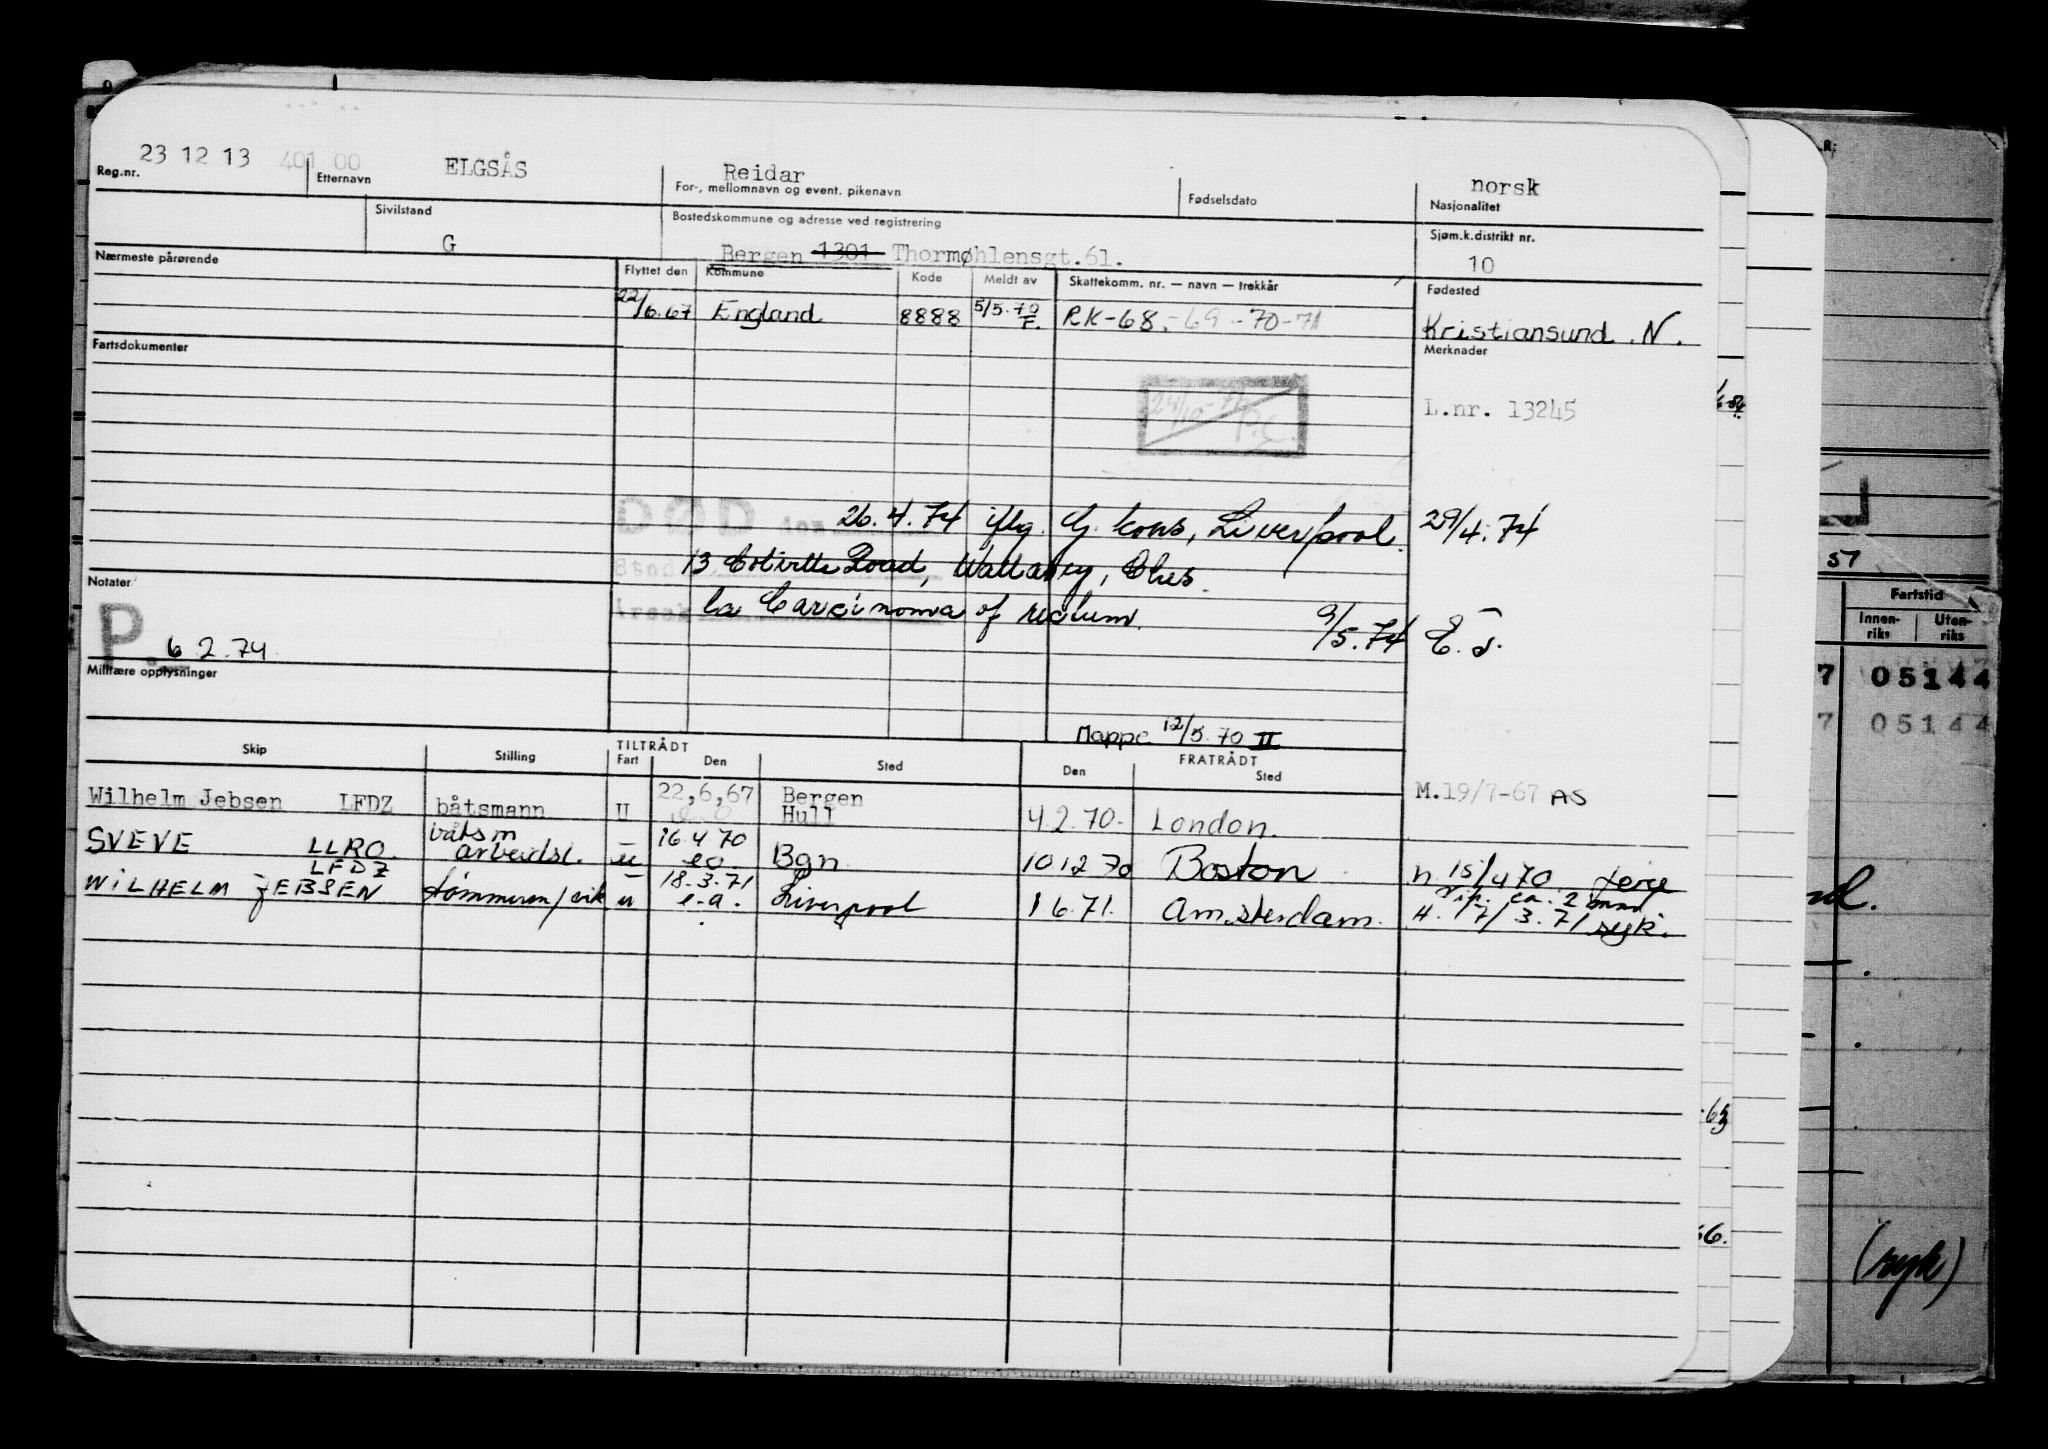 23 12 13 401 00 ELGSÅS Reidar norsk
Reg.nr. Etternavn For-, mellomnavn og event. pikenavn Fødselsdato Nasjonalitet
Sivilstand Bostedskommune og adresse ved registrering Sjøm.k.distrikt nr.
G Bergen 1301 Thormøhlensgt.61. 10
Nærmeste pårørende Flyttet den Kommune Kode Meldt av Skattekomm. nr. — navn — trekkår Fødested
22/6.67 England 8888 5/5.70 F. RK-68.-69-70-71 Kristiansund .N.
Fartsdokumenter Merknader
24/10-71 P.C.
L.nr. 13245
DØD 26.4.74 iflg. G. kons, Liverpool. 29/4.74
13 Road, Wallasey, Ches.
Ca Carcinoma of rectum. 9/5.74
Notater
P. 6.2.74
Militære opplysninger
Mappe 12/5.70 II
Skip Stilling TILTRÅDT Fart Den Sted FRATRÅDT Den Sted
Wilhelm Jebsen LFDZ båtsmann U 22,6,67 Bergen Hull 4.2.70. London. M.19/7-67 AS
SVEVE LLRO båtsm arbeidsl. u 16 4 70 eo Bgn 10 12 70 Boston h 15/4 70 ferie
ca. 2 mnd
WILHELM JEBSEN LFDZ tømmerm/ u 18.3.71 e.a. Liverpool 1 6.71. Amsterdam. H. 17/3.71 syk.
51
Fartstid
Innenriks Utenriks
7 05144
7 05144
63
66.
(syk)